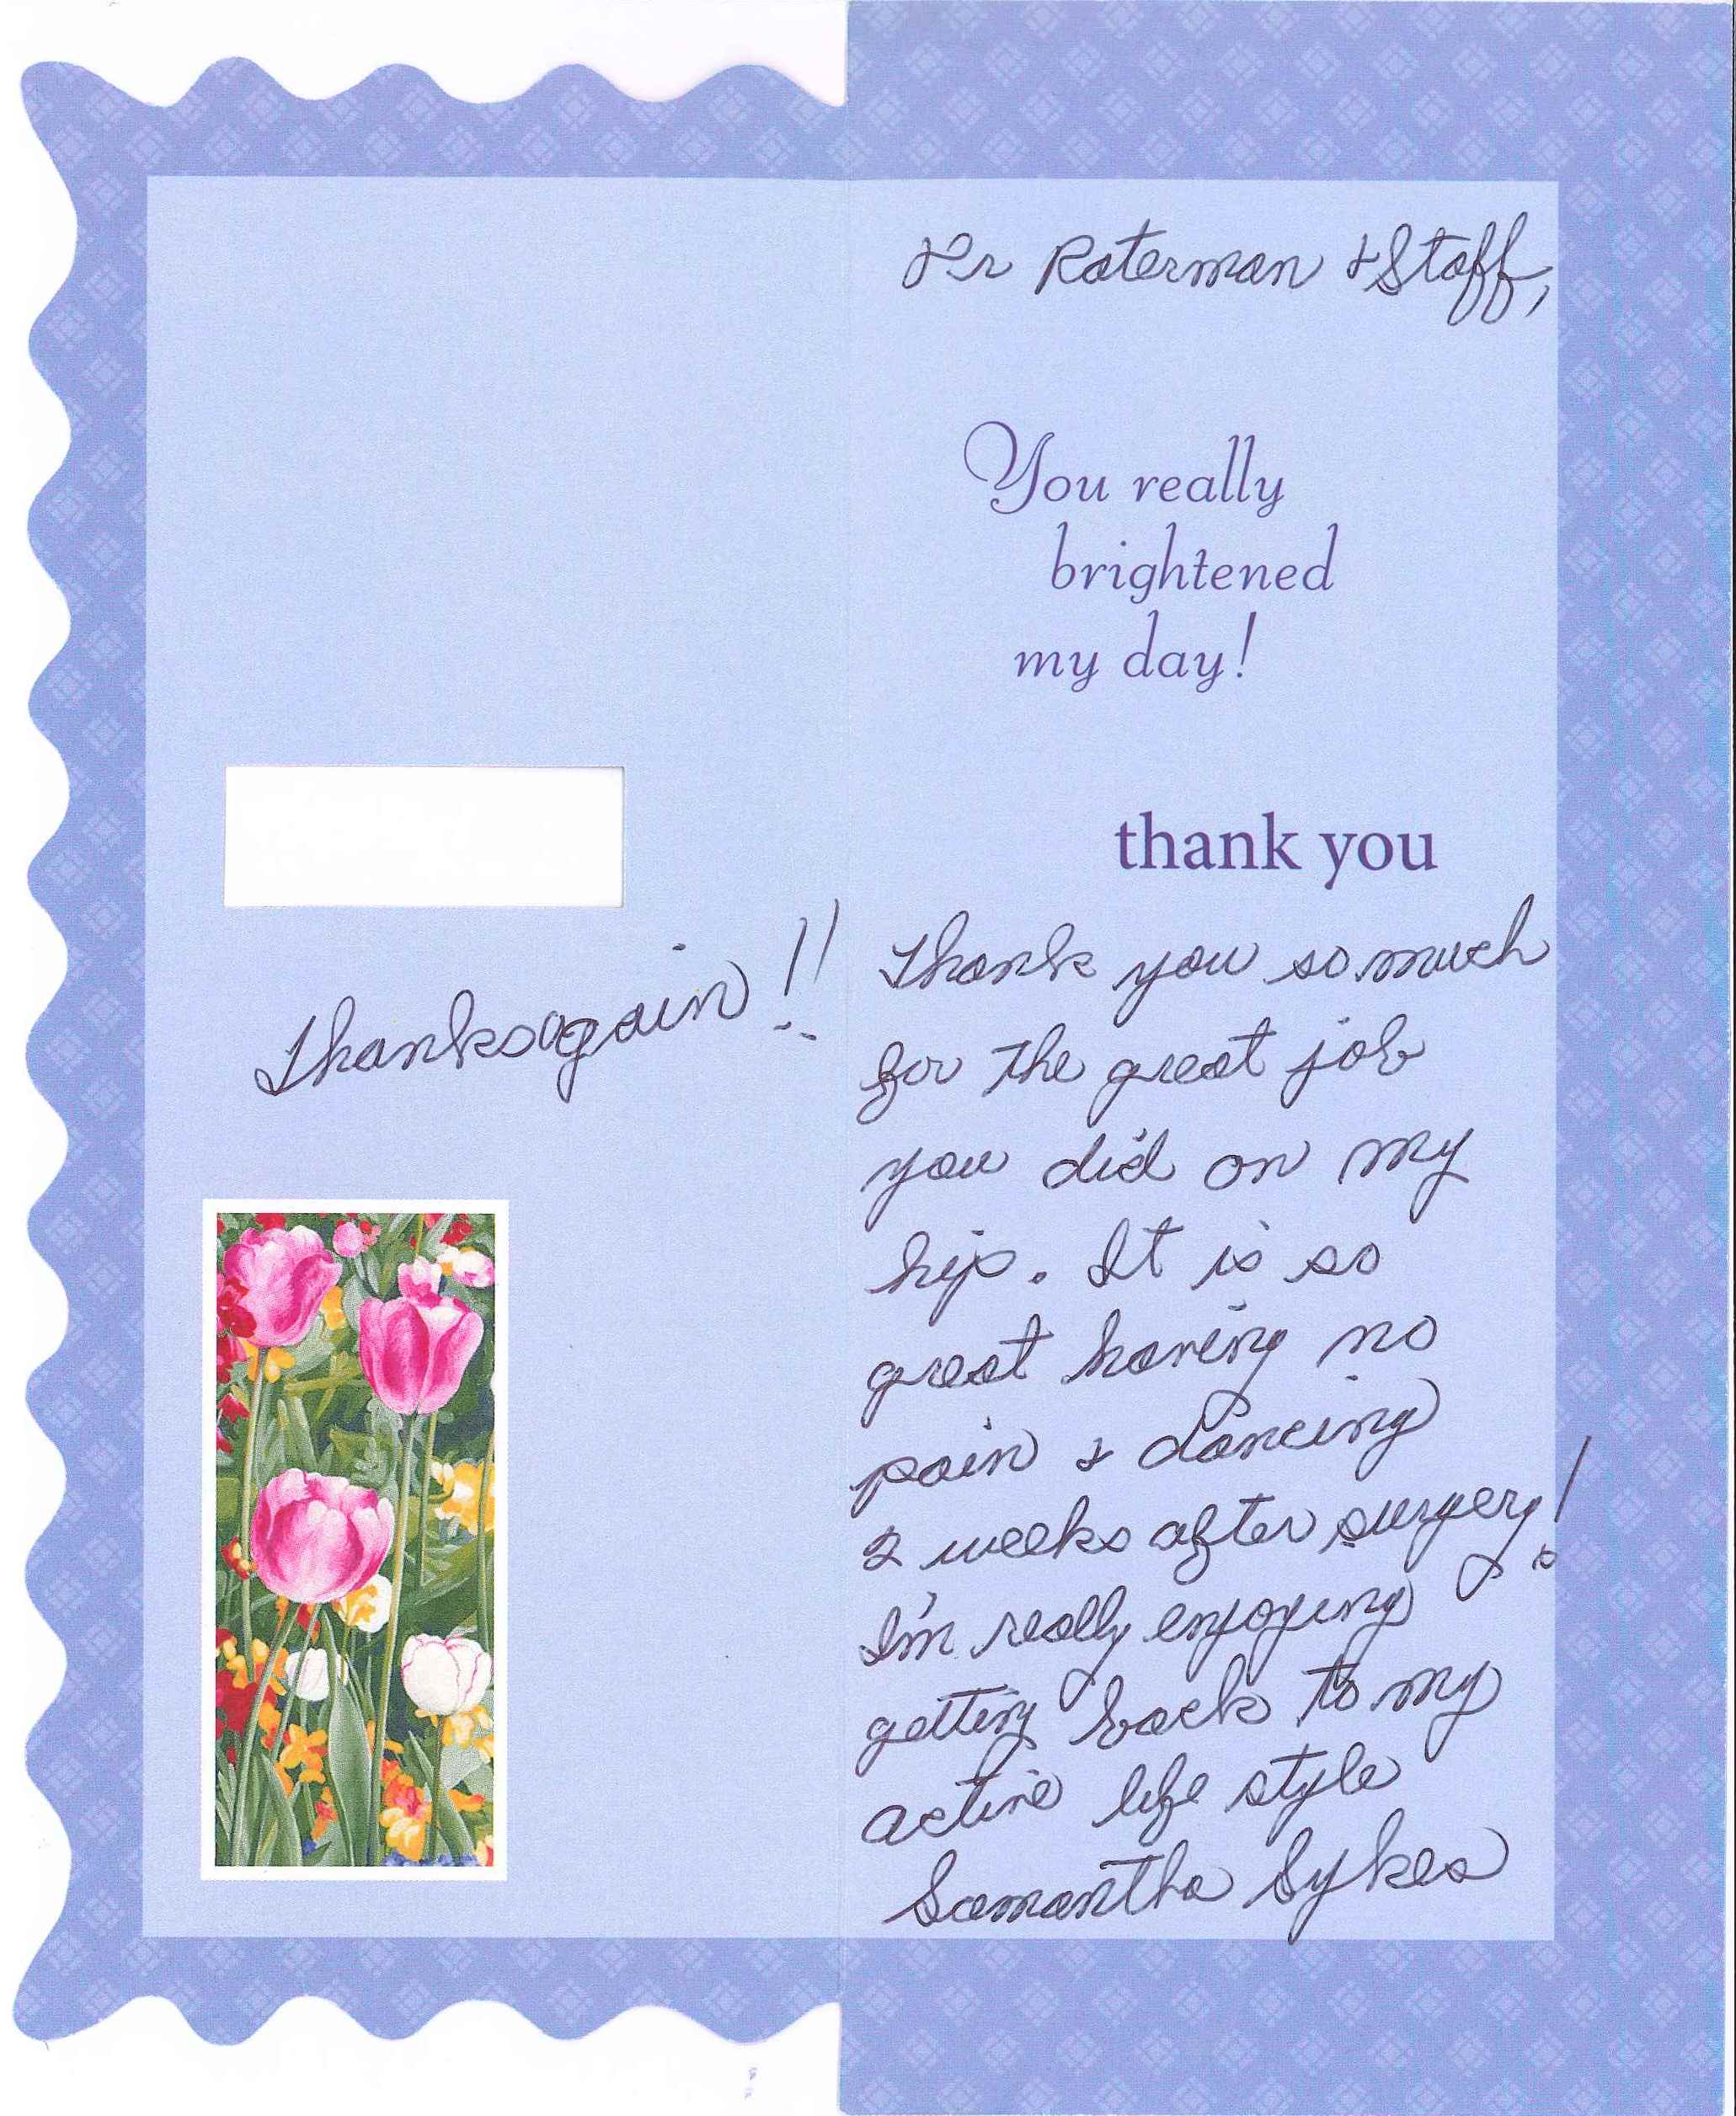 Dr Raterman & Staff,
You really
brightened
my day!
thank you
Thank you so much
for the great job
you did on my
hip. It is so
great having no
pain & dancing
2 weeks after surgery!
I'm really enjoying
getting back to my
active life style
Samantha Sykes
Thanks again!!